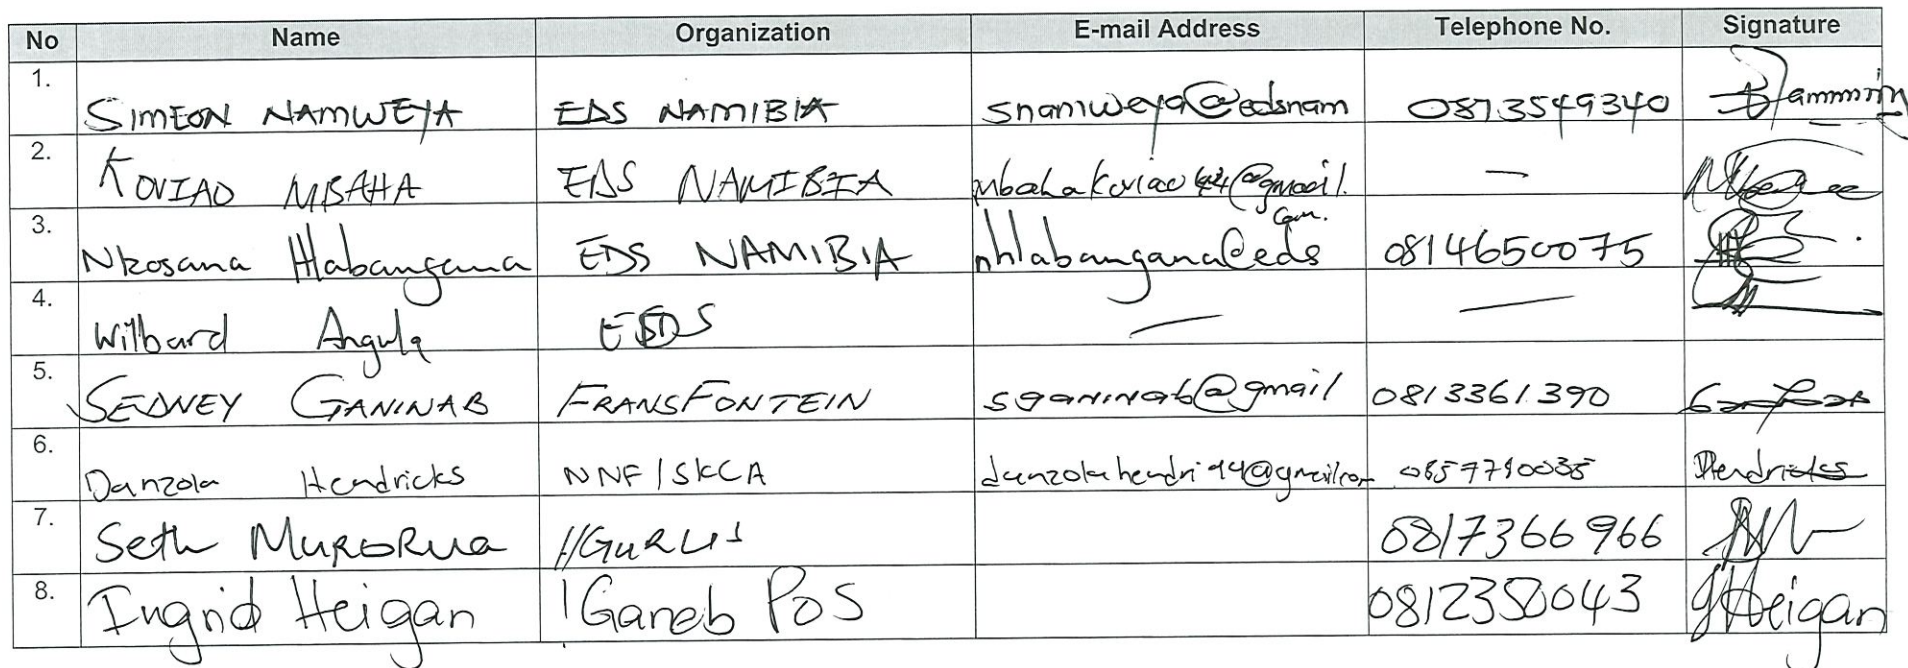 No Name Organization E-mail Address Telephone No. Signature
1. SIMEON NAMWEYA EDS NAMIBIA snamweya@edsnam 0813549340
2. KOVIAO MBAHA EDS NAMIBIA mbahakoviao44@gmail. —
com.
3. Nkosana Hlabangana EDS NAMIBIA nhlabangana@eds 0814650075
4. Wilbard Angula EDS — —
5. SEDNEY GANINAB FRANSFONTEIN sganinab@gmail 0813361390
6. Danzola Hendricks NNF / SKCA danzolahendri94@gmail.com 0857790035 Hendricks
7. Seth MURORUA 0817366966
8. Ingrid Heigan !Ganeb Pos 0812350043 Heigan